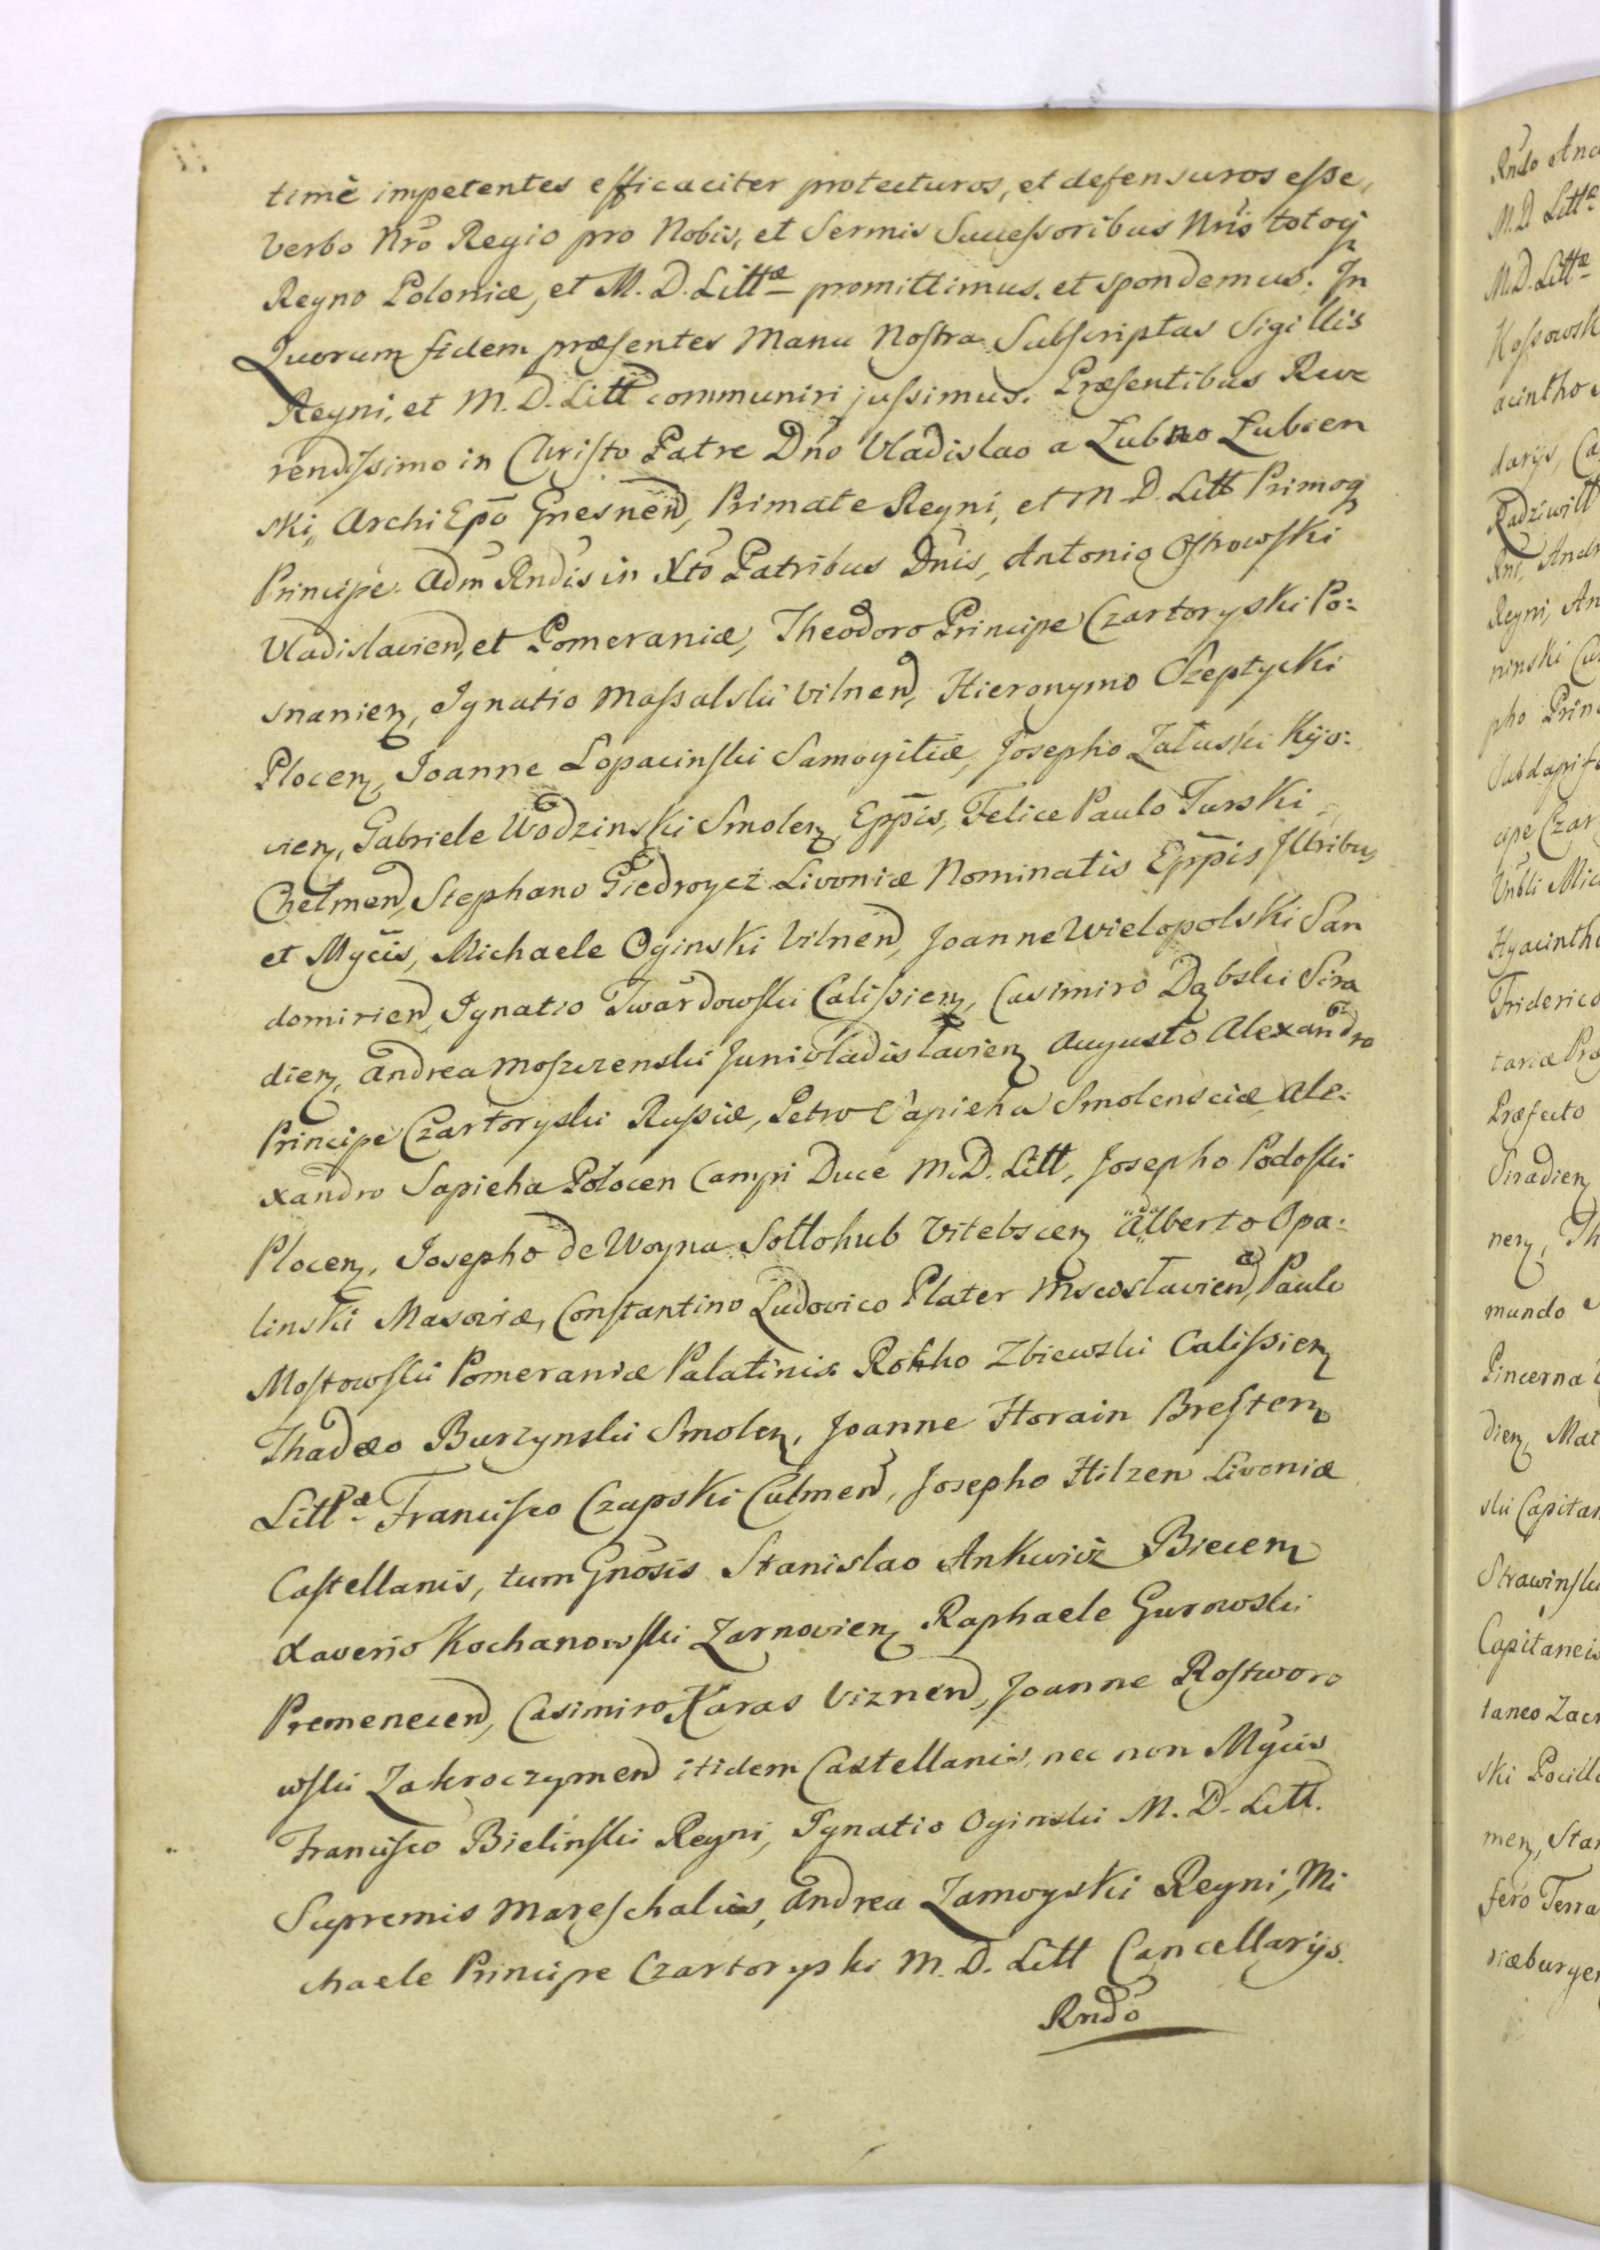 timè impetentes efficaciter protecturos, et defensuros esse,
Verbo Nrõ Regio pro Nobis, et Sermis Successoribus Nrĩs totoq
Regno Poloniæ, et M. D. Littæ promittimus, et spondemus. In
Quorum fidem præsentes Manu Nostra Subscriptas Sigillis
Regni, et M. D. Litt communiri jussimus. Præsentibus Reve
rendissimo in Christo Patre Dño Vladislao a Lubno Lubien
ski, Archi Epõ Gnesnen, Primate Regni, et M. D. Litt Primoq
Principe. Adm Rndis in Xto Patribus Dnis, Antonio Ostrowski
Vladislavien, et Pomeraniæ, Theodoro Principe Czartoryski Po:
snanien, Ignatio Massalski Vilnen, Hieronymo Szeptycki
Plocen, Joanne Lopacinski Samogitiæ, Josepho Załuski Kijo:
vien, Gabriele Wodzinski Smolen, Eppis, Felice Paulo Turski
Chelmen, Stephano Giedroycz Livoniæ Nominatis Eppis Illribus,
et Mgcis, Michaele Oginski Vilnen, Joanne Wielopolski San
domirien, Ignatio Twardowski Calissien, Casimiro Dąbski Sira
dien, Andrea Moszczenski Junivladislavien Augusto Alexandro
Principe Czartoryski Russiæ, Petro Sapieha Smolensciæ Ale:
xandro Sapieha Polocen Campi Duce M. D. Litt, Josepho Podoski
Plocen, Josepho de Woyna Sołłohub Vitebscen Alberto Opa:
linski Masoviæ, Constantino Ludovico Plater Mscislavien, Paulo
Mostowski Pomeraniæ Palatinis Rokho Zbiewski Calissien
Thadæo Burzynski Smolen, Joanne Horain Bresten
Littæ Francisco Czapski Culmen, Josepho Hilzen Livoniæ
Castellanis, tum Gnosis Stanislao Ankwicz Biecen
Xaverio Kochanowski Zarnovien Raphaele Gurowski
Premenecen, Casimiro Karas Viznen, Joanne Rostworo
wski Zakroczymen itidem Castellanis, nec non Mgcis
Francisco Bielinski Regni, Ignatio Oginski M. D. Litt.
Supremis Mareschalcis, Andrea Zamoyski Regni, Mi
chaele Principe Czartoryski M. D. Litt Cancellarijs.
Rndo